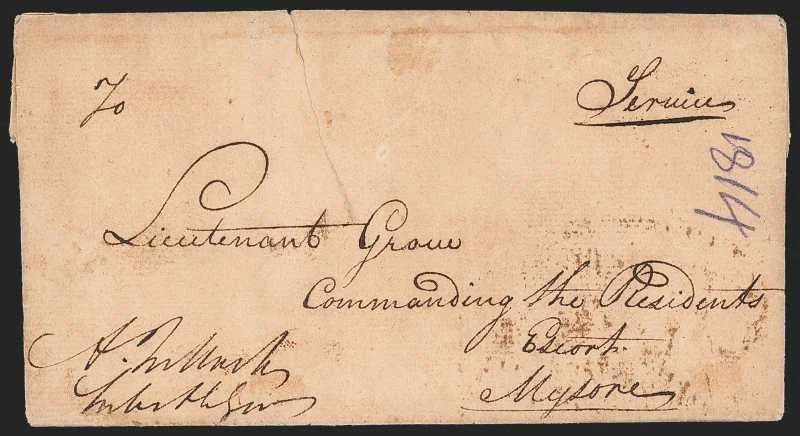 To
Service
1814
Lieutenant Grove
Commanding the Residents
Escort
Mysore
A.